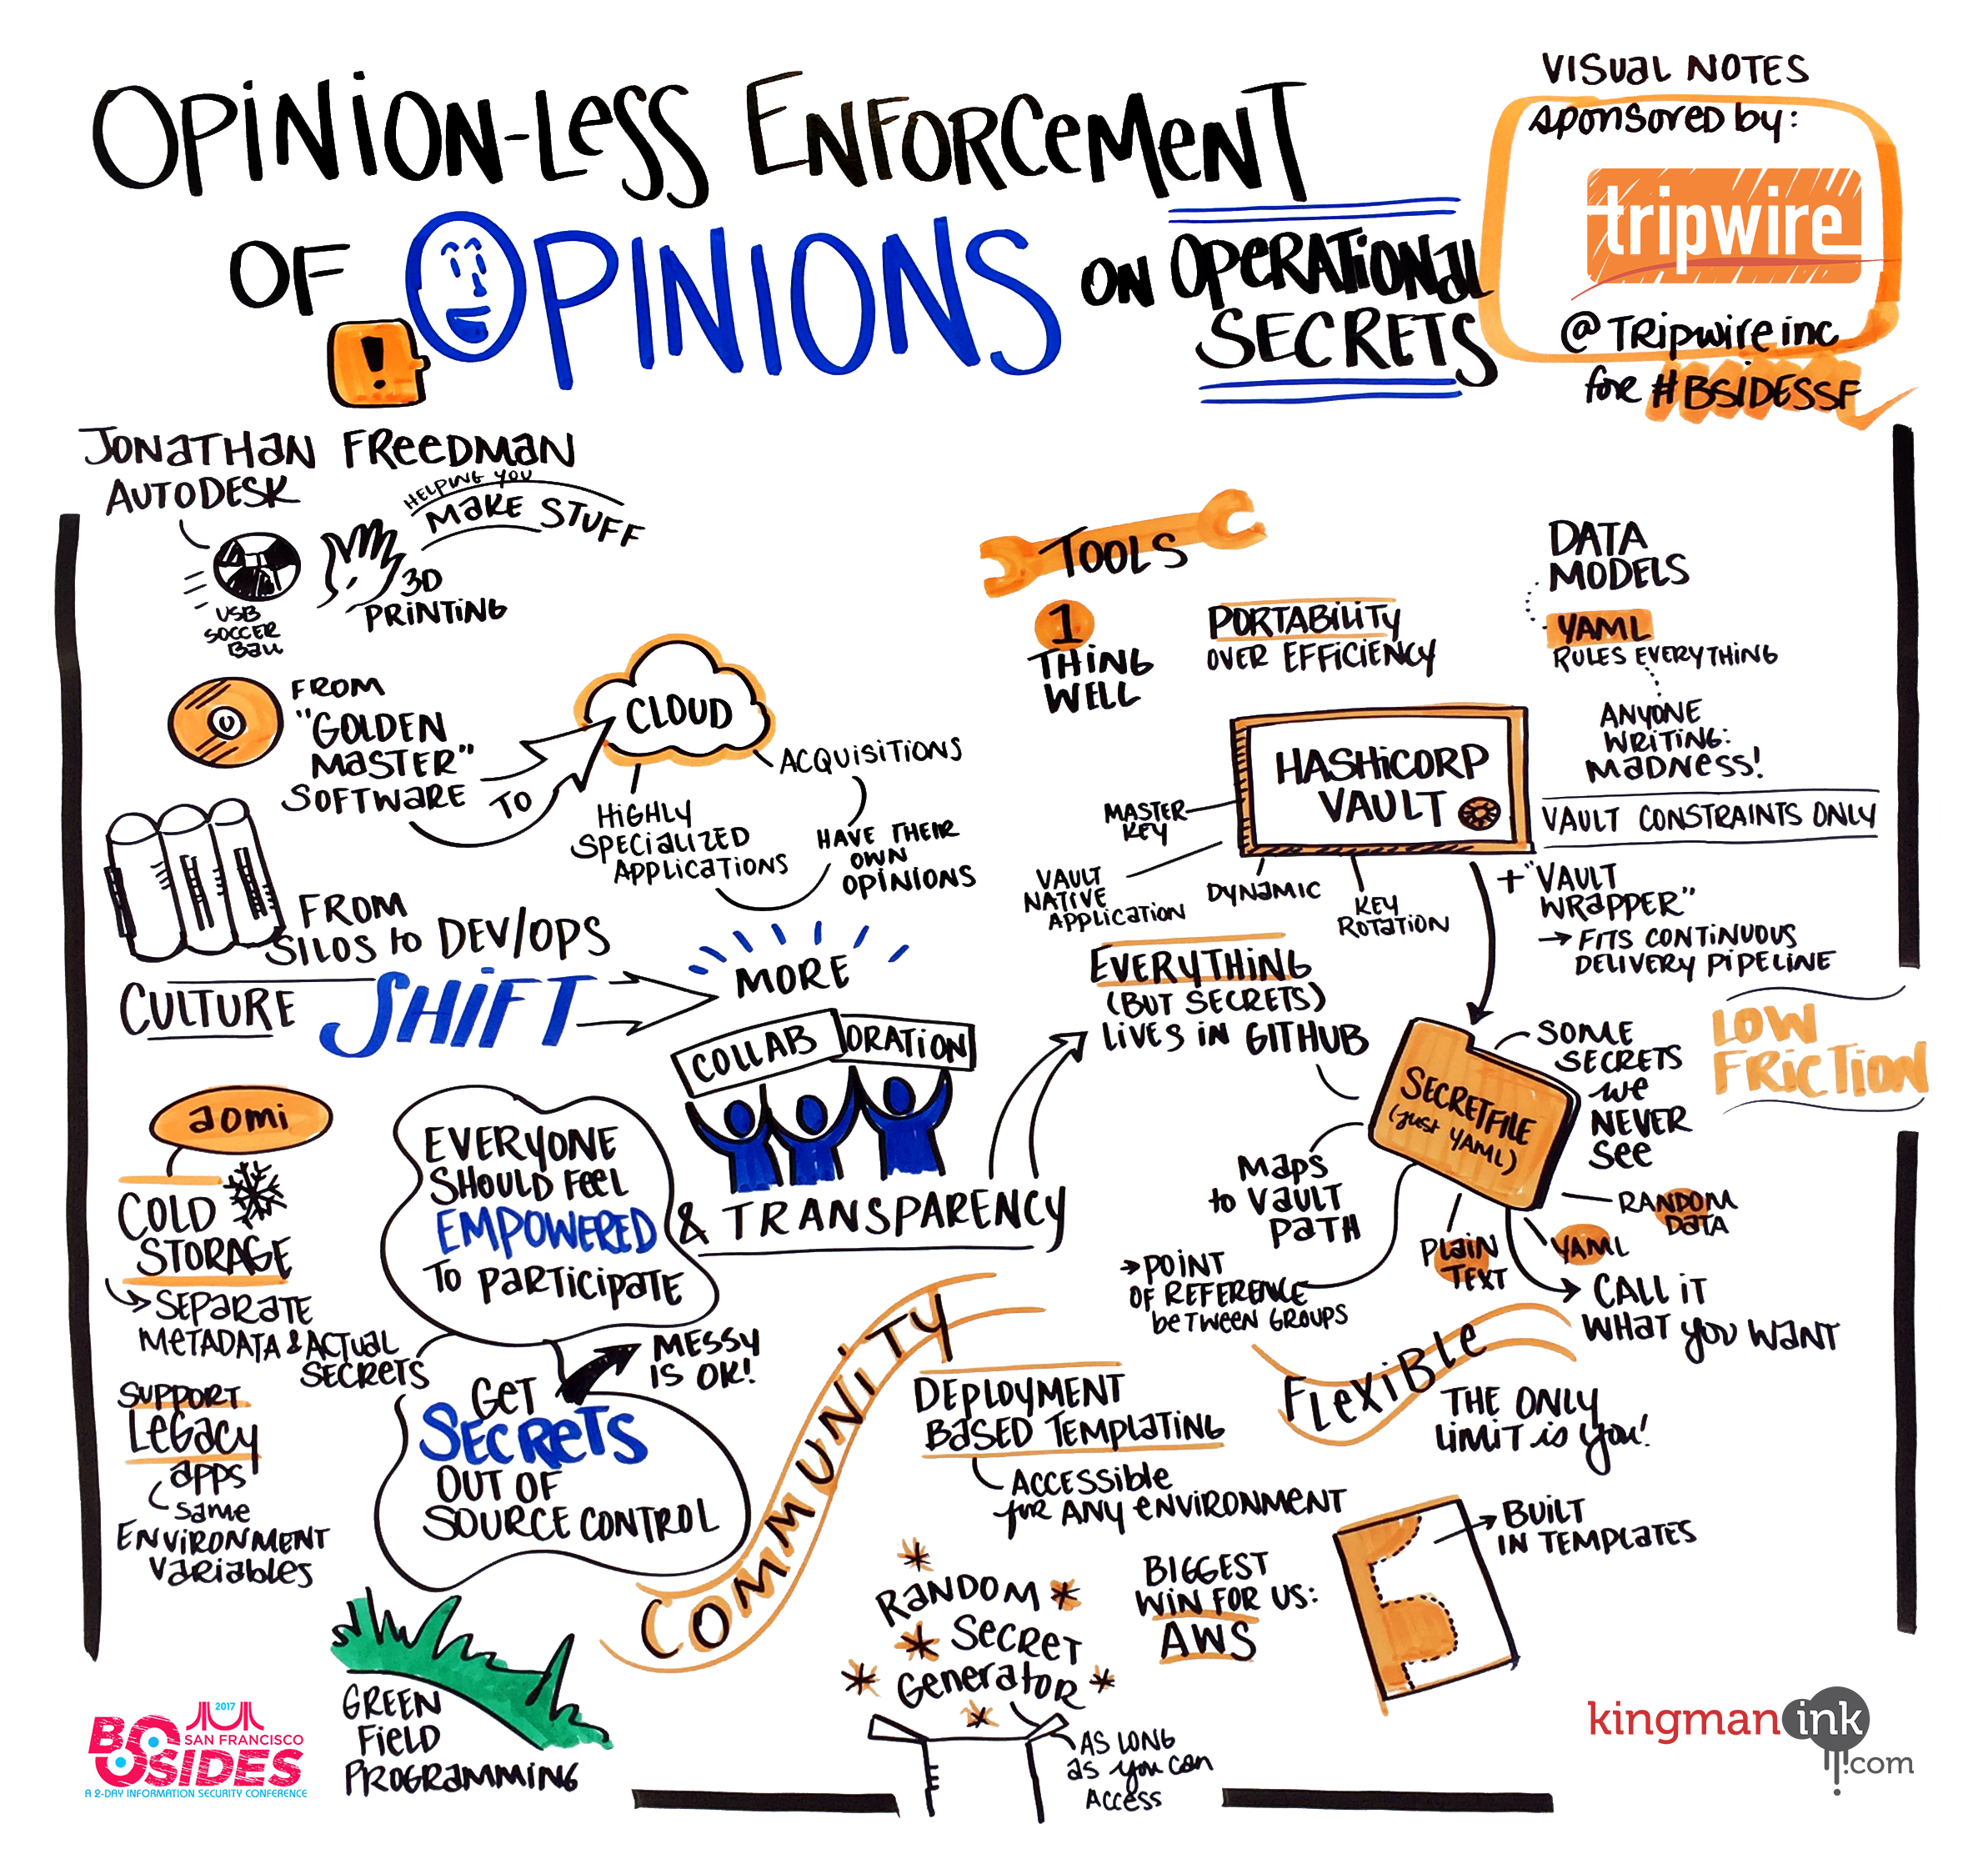 OPINION-LESS ENFORCEMENT
OF OPINIONS ON OPERATIONAL
SECRETS
!
VISUAL NOTES
sponsored by:
tripwire
@TRipwireinc
for #BSIDESSF
JONATHAN FREEDMAN
AUTODESK
HELPING YOU
MAKE STUFF
USB
SOCCER
Ball
3D
PRINTING
FROM
"GOLDEN
MASTER"
SOFTWARE
TO
CLOUD
HIGHLY
SPECIALIZED
APPLICATIONS
ACQUISITIONS
HAVE THEIR
OWN
OPINIONS
FROM
SILOS to DEV/OPS
CULTURE SHIFT
MORE
COLLABORATION
& TRANSPARENCY
aomi
COLD
STORAGE
SEPARATE
METADATA & ACTUAL
SECRETS
SUPPORT
LEGACY
apps
same
ENVIRONMENT
variables
EVERYONE
SHOULD FEEL
EMPOWERED
TO PARTICIPATE
MESSY
IS OK!
GET
SECRETS
OUT OF
SOURCE CONTROL
GREEN
FIELD
PROGRAMMING
COMMUNITY
TOOLS
1
THING
WELL
PORTABILITY
OVER EFFICIENCY
DATA
MODELS
YAML
RULES EVERYTHING
ANYONE
WRITING:
MADNESS!
HASHICORP
VAULT
VAULT CONSTRAINTS ONLY
MASTER
KEY
VAULT
NATIVE
APPLICATION
DYNAMIC
KEY
ROTATION
+ "VAULT
WRAPPER"
→ FITS CONTINUOUS
DELIVERY PIPELINE
EVERYTHING
(BUT SECRETS)
LIVES IN GITHUB
SECRETFILE
(just YAML)
SOME
SECRETS
we
NEVER
see
LOW
FRICTION
MAPS
to VAULT
PATH
→ POINT
OF REFERENCE
beTWEEN GROUPS
PLAIN
TEXT
YAML
RANDOM
DATA
CALL IT
WHAT you WANT
FLEXIBLE
THE ONLY
LIMIT is you!
DEPLOYMENT
BASED TEMPLATING
ACCESSIBLE
for ANY ENVIRONMENT
BUILT
IN TEMPLATES
BIGGEST
WIN FOR US:
AWS
RANDOM
SECRET
Generator
AS LONG
as you can
ACCESS
2017
BSIDES
SAN FRANCISCO
A 2-DAY INFORMATION SECURITY CONFERENCE
kingman ink
.com